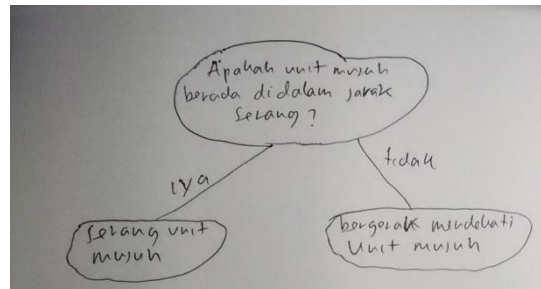 Apakah unit musuh
berada didalam jarak
serang?
iya
tidak
serang unit
musuh
bergerak mendekati
Unit musuh